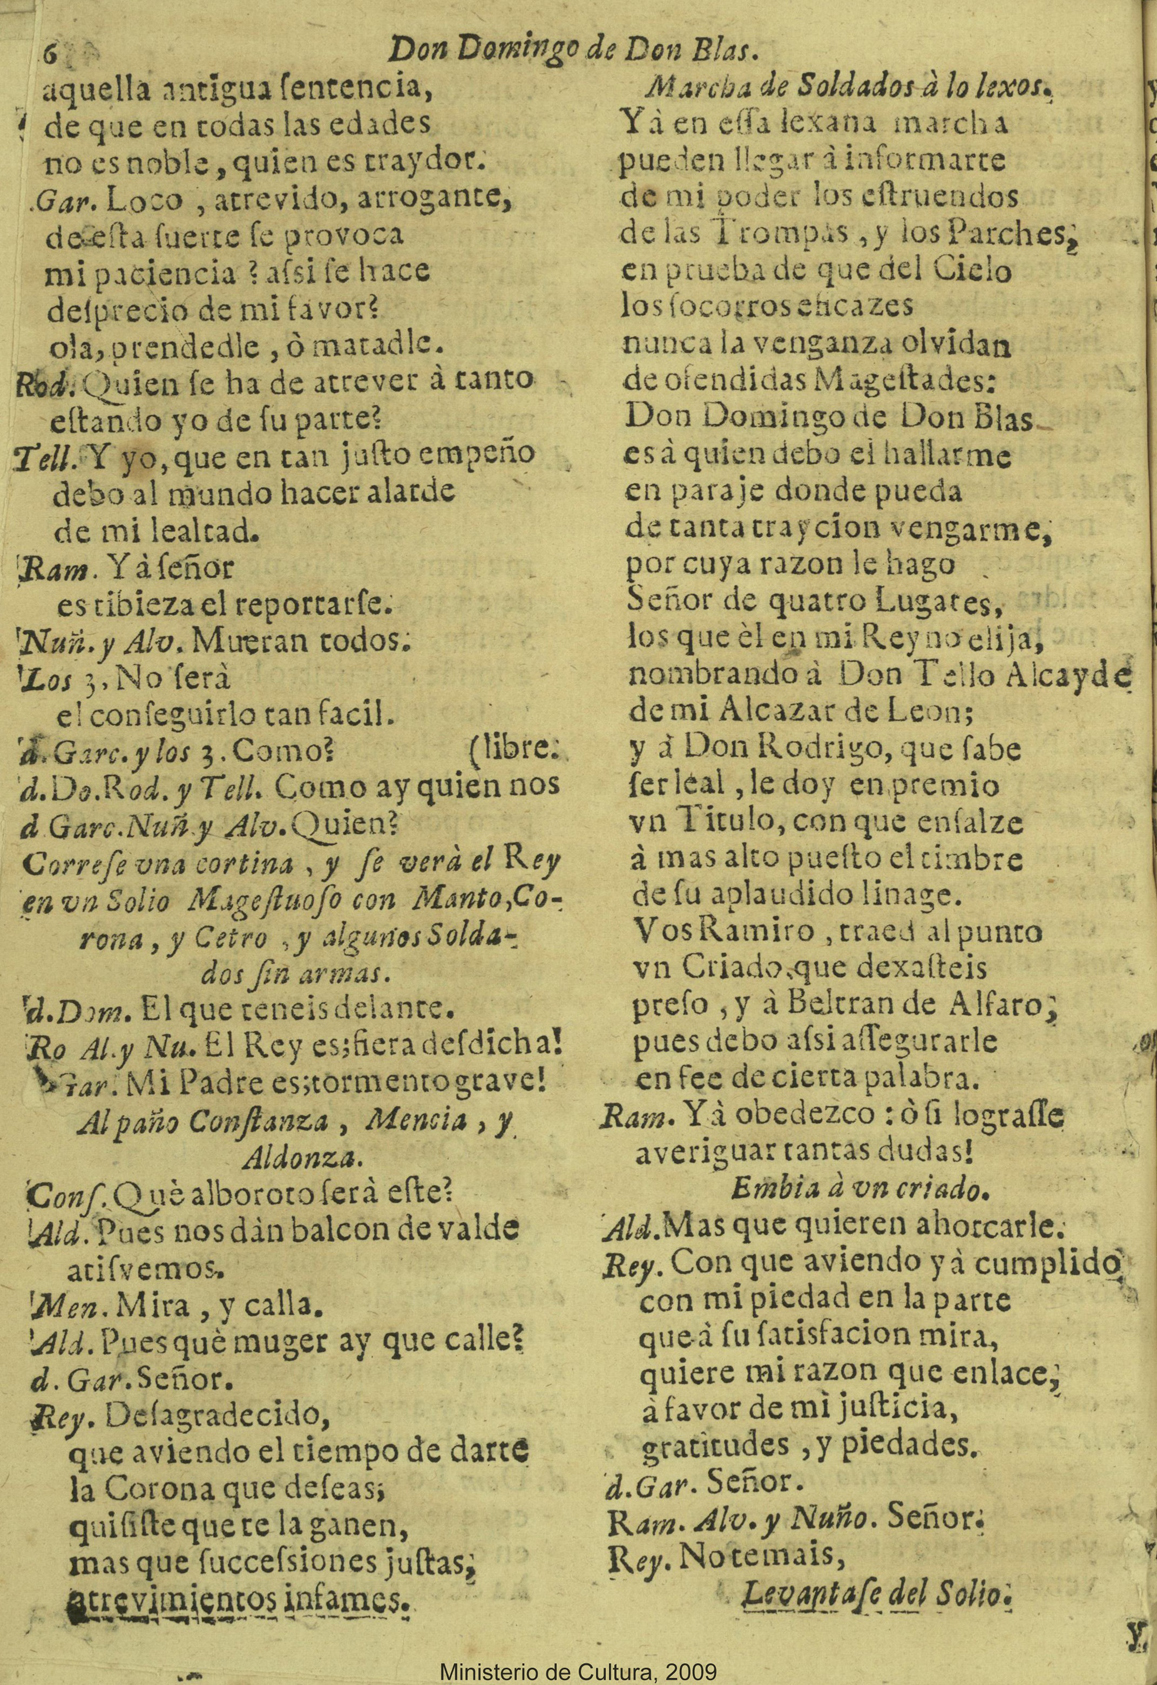 6
Don Domingo de Don Blas.
aquella antigua ſentencia,
de que en todas las edades
no es noble, quien es traydor.
Gar. Loco , atrevido, arrogante,
de eſta ſuerte ſe provoca
mi paciencia ? aſsi ſe hace
deſprecio de mi favor?
ola, prendedle , ò matadle.
Rod. Quien ſe ha de atrever à tanto
eſtando yo de ſu parte?
Tell. Y yo, que en tan juſto empeño
debo al mundo hacer alarde
de mi lealtad.
Ram. Yà ſeñor
es tibieza el reportarſe.
Nuñ. y Alv. Mueran todos.
Los 3. No ſerà
el conſeguirlo tan facil.
d. Garc. y los 3. Como? (libre.
d. Do. Rod. y Tell. Como ay quien nos
d Garc. Nuñ y Alv. Quien?
Correſe vna cortina , y ſe verà el Rey
en vn Solio Mageſtuoſo con Manto, Co-
rona , y Cetro , y algunos Solda-
dos ſin armas.
d. Dom. El que teneis delante.
Ro Al. y Nu. El Rey es; fiera deſdicha!
Gar. Mi Padre es; tormento grave!
Al paño Conſtanza , Mencia , y
Aldonza.
Conſ. Què alboroto ſerà eſte?
Ald. Pues nos dàn balcon de valde
atiſvemos.
Men. Mira , y calla.
Ald. Pues què muger ay que calle?
d. Gar. Señor.
Rey. Deſagradecido,
que aviendo el tiempo de darte
la Corona que deſeas;
quiſiſte que te la ganen,
mas que ſucceſsiones juſtas,
atrevimientos infames.
Marcha de Soldados à lo lexos.
Yà en eſſa lexana marcha
pueden llegar à informarte
de mi poder los eſtruendos
de las Trompas , y los Parches,
en prueba de que del Cielo
los ſocorros eficazes
nunca la venganza olvidan
de ofendidas Mageſtades:
Don Domingo de Don Blas
es à quien debo el hallarme
en paraje donde pueda
de tanta traycion vengarme,
por cuya razon le hago
Señor de quatro Lugares,
los que èl en mi Reyno elija,
nombrando à Don Tello Alcayde
de mi Alcazar de Leon;
y à Don Rodrigo, que ſabe
ſer leal , le doy en premio
vn Titulo, con que enſalze
à mas alto pueſto el timbre
de ſu aplaudido linage.
Vos Ramiro , traed al punto
vn Criado, que dexaſteis
preſo , y à Beltran de Alfaro;
pues debo aſsi aſſegurarle
en fee de cierta palabra.
Ram. Yà obedezco : ò ſi lograſſe
averiguar tantas dudas!
Embia à vn criado.
Ald. Mas que quieren ahorcarle.
Rey. Con que aviendo yà cumplido
con mi piedad en la parte
que à ſu ſatisfacion mira,
quiere mi razon que enlace,
à favor de mi juſticia,
gratitudes , y piedades.
d. Gar. Señor.
Ram. Alv. y Nuño. Señor.
Rey. No temais,
Levantaſe del Solio.
y
Ministerio de Cultura, 2009